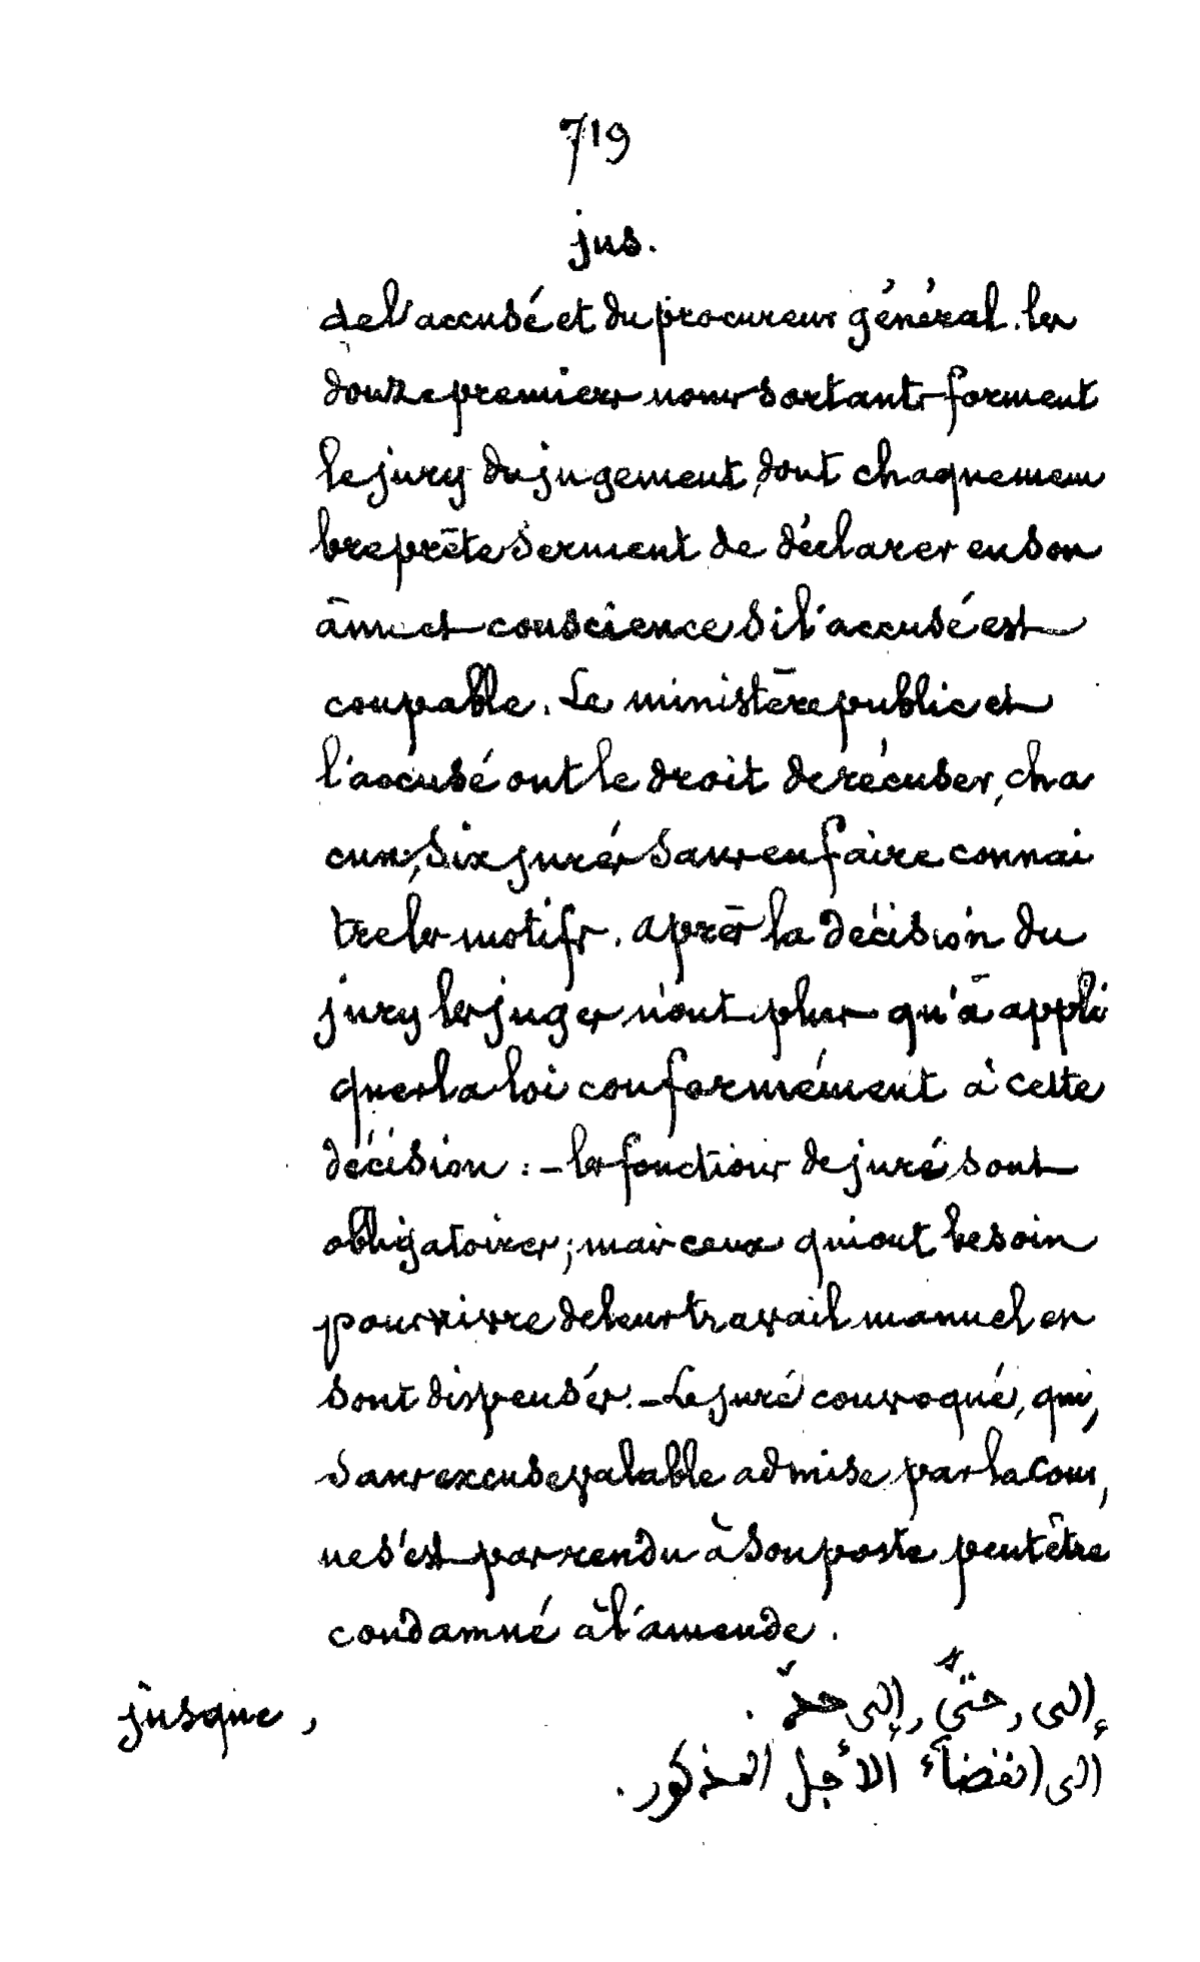 719
jus.
de l'accusé et du procureur général. les
douze premiers noms sortants forment
le jury du jugement, dont chaque mem
bre prête serment de déclarer en son
âme et conscience si l'accusé est
coupable. Le ministère public et
l'accusé ont le droit de récuser, cha
cun, six jurés sans en faire connai
tre les motifs. après la décision du
jury les juges n'ont plus qu'à appli
quer la loi conformément à cette
décision : - les fonctions de juré sont
obligatoires ; mais ceux qui ont besoin
pour vivre de leur travail manuel en
sont dispensés. - Le juré convoqué, qui,
sans excuse valable admise par la Cour,
ne s'est pas rendu à son poste peut être
condamné à l'amende.
jusque, إلى, حتىّ, إلى حدّ .
إلى انقضآء الأجل المذكور .